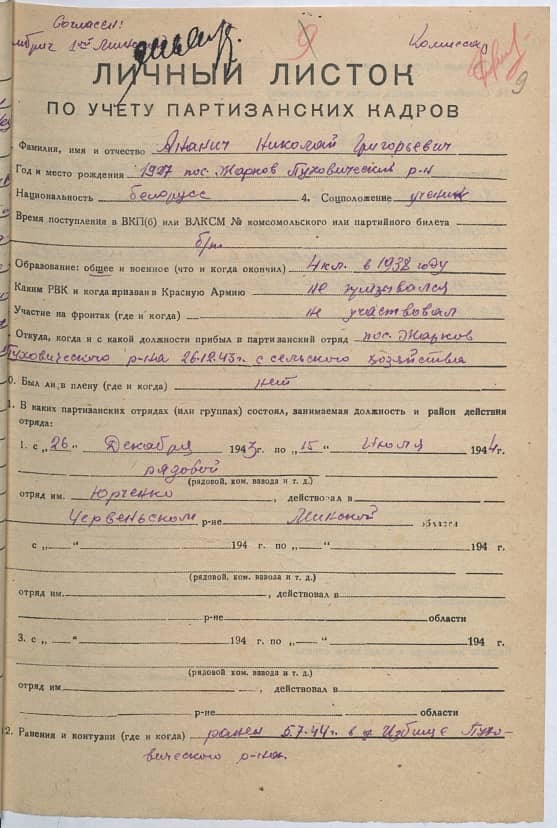 Согласен:
Комиссар
9
9
ЛИЧНЫЙ ЛИСТОК
ПО УЧЕТУ ПАРТИЗАНСКИХ КАДРОВ
Фамилия, имя и отчество Ананич Николай Григорьевич
Год и место рождения 1927 пос. Жарков Пуховический р-н
Национальность белорусс 4. Соцположение ученик
Время поступления в ВКП(б) или ВЛКСМ № комсомольского или партийного билета
б/п
Образование: общее и военное (что и когда окончил) 4 кл. в 1938 году
Каким РВК и когда призван в Красную Армию не призывался
Участие на фронтах (где и когда) не участвовал
Откуда, когда и с какой должности прибыл в партизанский отряд пос. Жарков
Пуховического р-на 26.12.43 г. с сельского хозяйства
0. Был ли в плену (где и когда) нет
1. В каких партизанских отрядах (или группах) состоял, занимаемая должность и район действия
отряда:
1. с „26" Декабря 1943 г. по „15" Июля 1944 г.
рядовой
(рядовой, ком. взвода и т. д.)
отряд им. Юрченко, действовал в
Червеньском р-не Минской области
с „ " 194 г. по „ " 194 г.
(рядовой, ком. взвода и т. д.)
отряд им. , действовал в
р-не области
3. с „ " 194 г. по „ " 194 г.
(рядовой, ком. взвода и т. д.)
отряд им. , действовал в
р-не области
2. Ранения и контузии (где и когда) ранен 5.7.44 г. в д. Избище Пухо-
вического р-на.